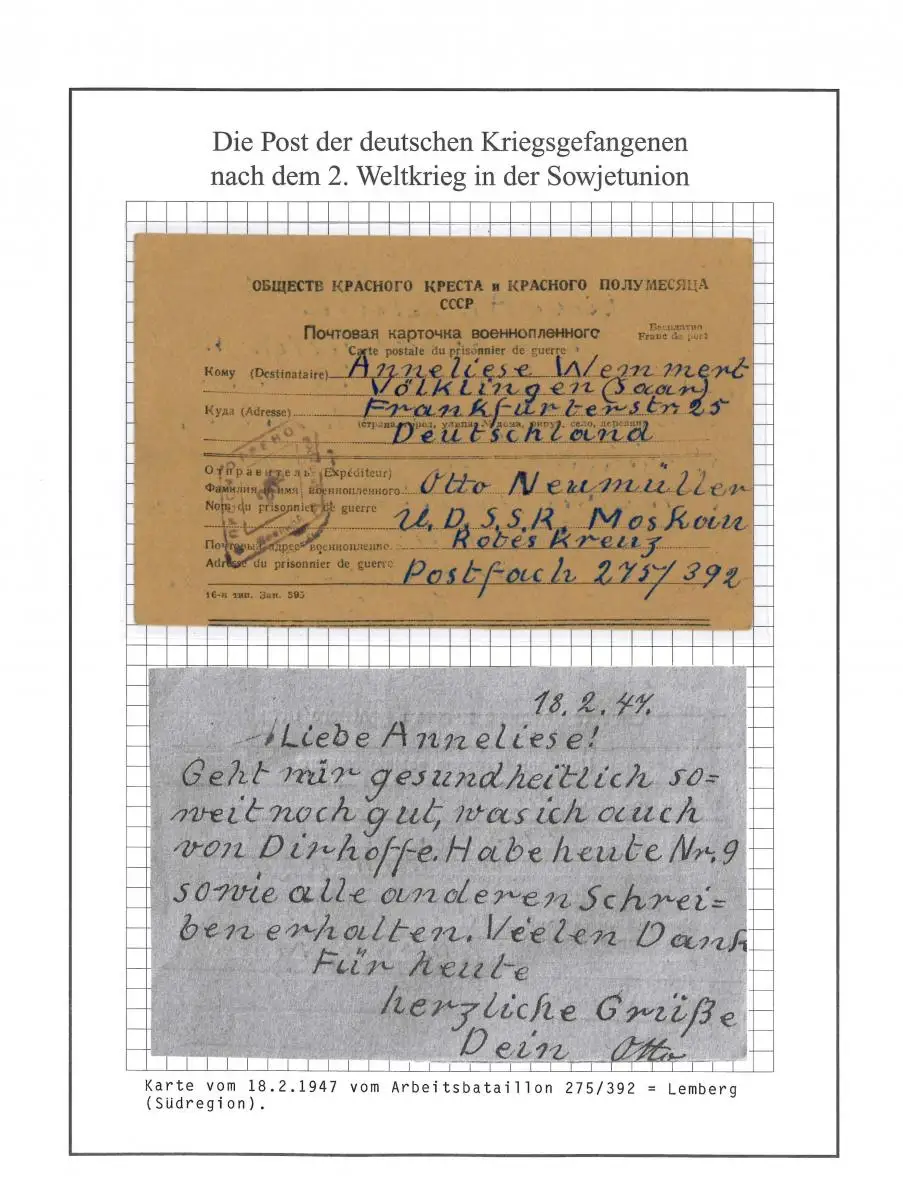 Die Post der deutschen Kriegsgefangenen
nach dem 2. Weltkrieg in der Sowjetunion
ОБЩЕСТВ КРАСНОГО КРЕСТА и КРАСНОГО ПОЛУМЕСЯЦА
СССР
Почтовая карточка военнопленного
Бесплатно
Franc de port
Carte postale du prisonnier de guerre
Кому (Destinataire) Anneliese Wemmert
Völklingen (Saar)
Куда (Adresse) Frankfurterstr 25
(страна, город, улица, № дома, округ, село, деревня)
Deutschland
Отправитель (Expéditeur)
Фамилия и имя военнопленного Otto Neumüller
Nom du prisonnier de guerre
U.D.S.S.R. Moskau
Почтовый адрес военнопленно. Rotes Kreuz
Adresse du prisonnier de guerre Postfach 275/392
16-я тип. Зак. 595
18.2.47.
Liebe Anneliese!
Geht mir gesundheitlich so=
weit noch gut, was ich auch
von Dir hoffe. Habe heute Nr. 9
sowie alle anderen Schrei=
ben erhalten. Vielen Dank
Für heute
herzliche Grüße
Dein Otto
Karte vom 18.2.1947 vom Arbeitsbataillon 275/392 = Lemberg
(Südregion).